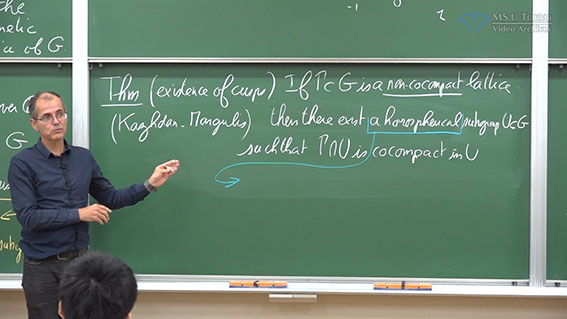 the
netic
ice of G
MS U-TOKYO
Video Archives
Thm (existence of cusps) If Γ⊂G is a non cocompact lattice
(Kazhdan-Margulis) then there exist a horospherical subgroup U⊂G
such that Γ∩U is cocompact in U
G